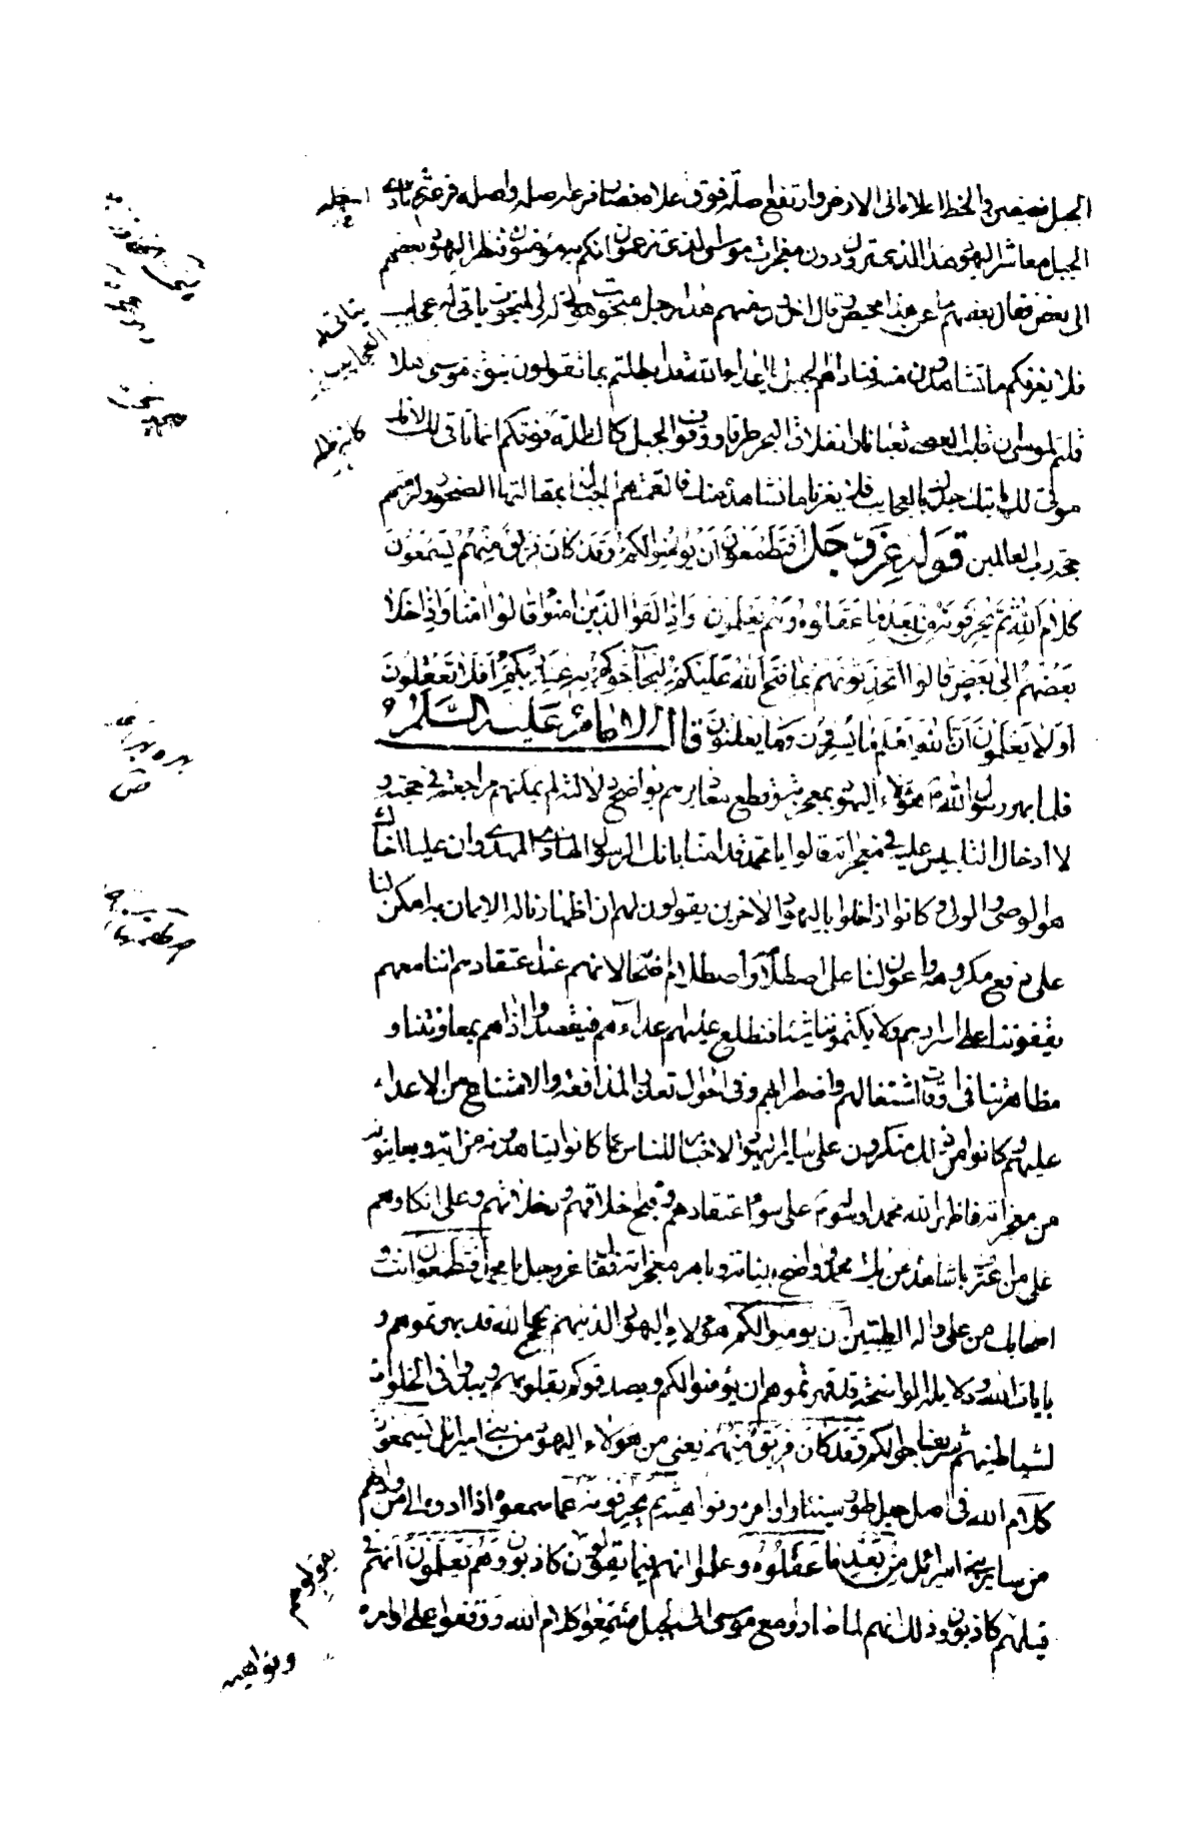 الجبل نصفين وانحط اعلاه الى الارض وارتفع اصله فوق اعلاه فصار فرعه اصله واصله فرعه ثم نادى
الجبل معاشر اليهود هذا الذى ترون دون معجزات موسى الذى تزعمون انكم به مؤمنون فنظر اليهود بعضهم
الى بعض فقال بعضهم ما عن هذا محيص وقال اخرون منهم هذا رجل مبخوت مؤتى له والمبخوت ياتى له العجايب
فلا يغرنكم ما تشاهدون منه فناداهم الجبل يا اعداء الله قد ابطلتم بما تقولون نبوة موسى هلا
قلتم لموسى ان قلب العصا ثعبانا وانفلاق البحر طرقا ووقوف الجبل كالظلة فوقكم انما تاتى لك لانك
مؤتى لك ياتيك جدك بالعجايب فلا يغرنا ما نشاهده منك فالقمتهم الجبال بمقالتها الصخور ولزمتهم
حجة رب العالمين قوله عز وجل افتطمعون ان يؤمنوا لكم وقد كان فريق منهم يسمعون
كلام الله ثم يحرفونه من بعد ما عقلوه وهم يعلمون واذا لقوا الذين امنوا قالوا امنا واذا خلا
بعضهم الى بعض قالوا اتحدثونهم بما فتح الله عليكم ليحاجوكم به عند ربكم افلا تعقلون
اولا يعلمون ان الله يعلم ما يسرون وما يعلنون قال الامام عليه السلم
فلما بهر رسول الله ص هؤلاء اليهود بمعجزته وقطع معاذيرهم بواضح دلالته لم يمكنهم مراجعته فى حجته و
لا ادخال التلبيس عليه فى معجزاته قالوا يا محمد قد امنا بانك الرسول الهادى المهدى وان عليا اخاك
هو الوصى والولى وكانوا اذا خلوا باليهود الاخرين يقولون لهم ان اظهارنا له الايمان به امكن لنا
على دفع مكروهه واعون لنا على اصطلامه واصطلام اصحابه لانهم عند اعتقادهم اننا معهم
يقفوننا على اسرارهم ولا يكتموننا شيئا فنطلع عليهم اعداءهم فيقصدون اذاهم بمعاونتنا و
مظاهرتنا فى اوقات اشتغالهم واضطرابهم وفى احوال تعذر المدافعة والامتناع من الاعداء
عليهم وكانوا مع ذلك منكرون على ساير اليهود الاخبار للناس عما كانوا يشاهدونه من اياته ويعاينونه
من معجزاته فاظهر الله محمدا رسوله على سوء اعتقادهم وقبح اخلاقهم ودخلاتهم وعلى انكارهم
على من اعترف بما شاهده من ايات محمد وواضح بيناته وباهر معجزاته فقال عز وجل يا محمد افتطمعون انت و
اصحابك من على واله الطيبين ان يؤمنوا لكم هؤلاء اليهود الذينهم بحجج الله قد بهرتموهم و
بايات الله ودلايله الواضحة قد قهرتموهم ان يؤمنوا لكم ويصدقوكم بقلوبهم ويبدوا فى الخلوات
لشياطينهم شريف احوالكم وقد كان فريق منهم يعنى من هؤلاء اليهود من بنى اسرائيل يسمعون
كلام الله فى اصل جبل طور سيناء واوامره ونواهيه ثم يحرفونه عما سمعوه اذا ادوه الى من ورائهم
من ساير بنى اسرائيل من بعد ما عقلوه وعلموا انهم فيما يقولون كاذبون وهم يعلمون انهم فى
قيلهم كاذبون وذلك انهم لما صاروا مع موسى الى الجبل فسمعوا كلام الله ووقفوا على اوامره
ونواهيه